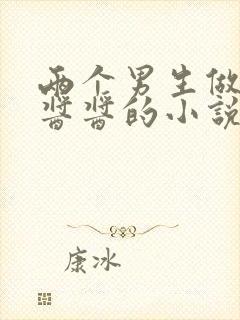 两个男生做
酱酱的小说
康冰